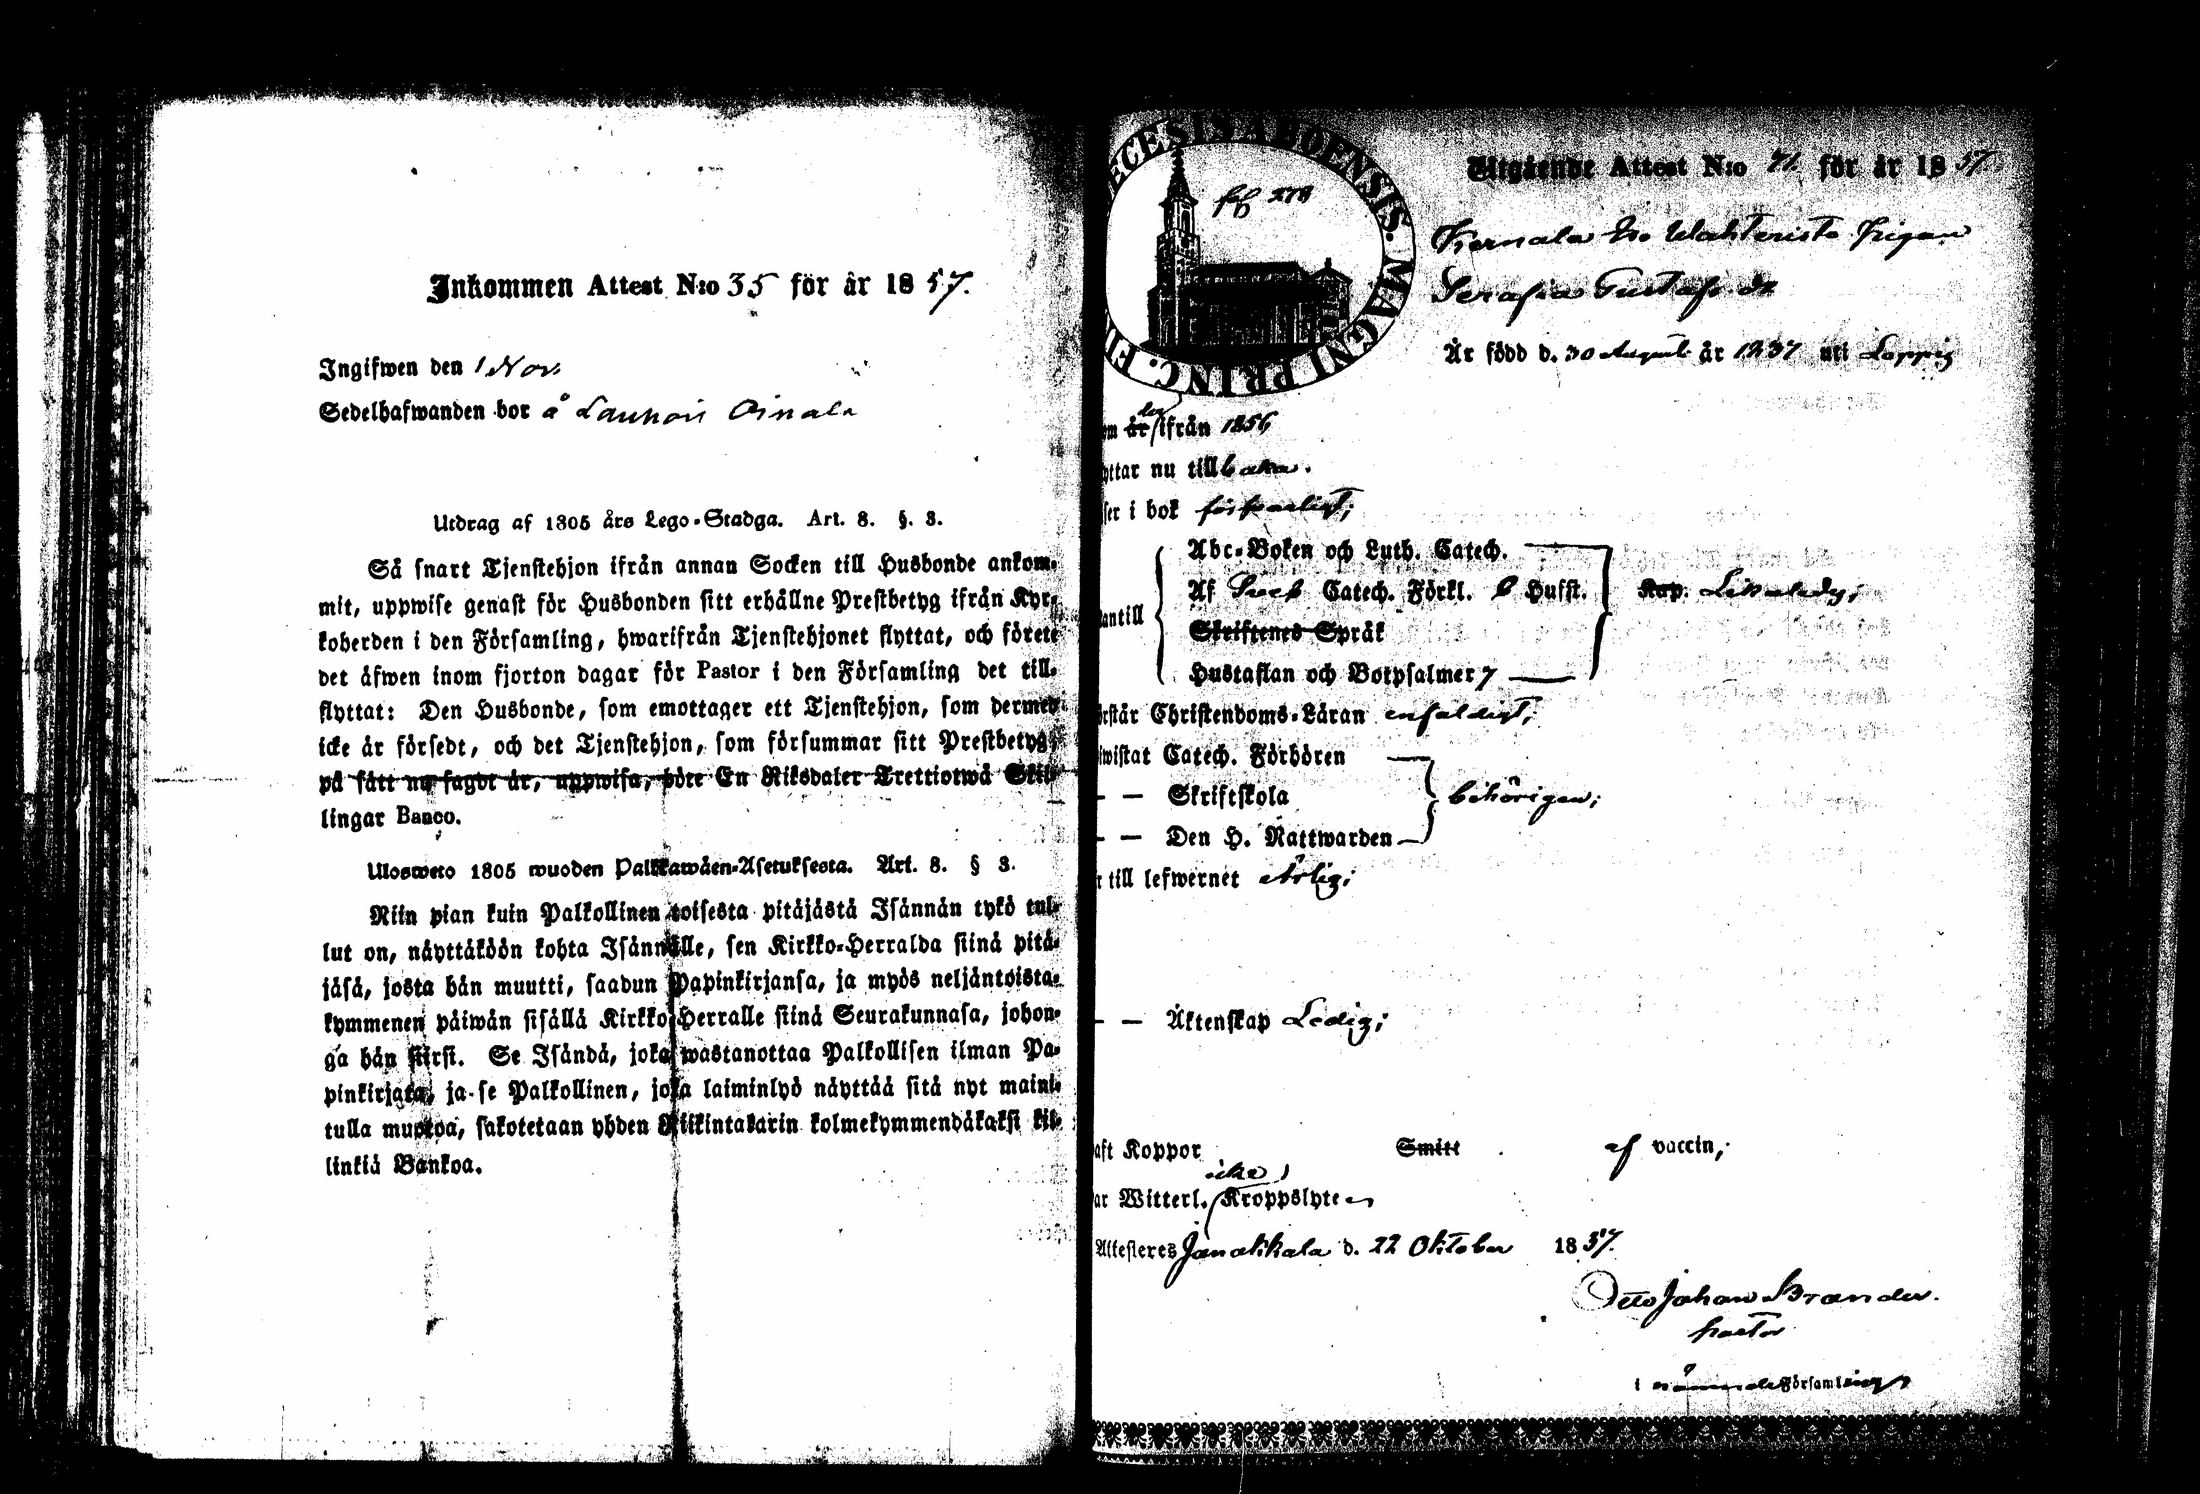 Inkommen Attest N:o 35 för år 1857.
Ingifwen den 1 Nov.
Sedelhafwanden bor å Launois Oinala
Utdrag af 1805 års Lego-Stadga. Art. 8. §. 3.
Så snart Tjenstehjon ifrån annan Socken till Husbonde ankom-
mit, uppwise genast för Husbonden sitt erhållne Prestbetyg ifrån Kyr-
koherden i den Församling, hwarifrån Tjenstehjonet flyttat, och förete
det äfwen inom fjorton dagar för Pastor i den Församling det till-
flyttat: Den Husbonde, som emottager ett Tjenstehjon, som dermed
icke är försedt, och det Tjenstehjon, som försummar sitt Prestbetyg,
på sätt nu sagdt är, uppwisa, böte En Riksdaler Trettiotwå Skil-
lingar Banco.
Ulosweto 1805 wuoden Palkkawäen-Asetuksesta. Art. 8. § 3.
Niin pian kuin Palkollinen toisesta pitäjästä Isännän tykö tul-
lut on, näyttäköön kohta Isännälle, sen Kirkko-Herralda siinä pitä-
jäsä, josta hän muutti, saadun Papinkirjansa, ja myös neljäntoista-
kymmenen päiwän sisällä Kirkko-Herralle siinä Seurakunnasa, johon-
ga hän siirsi. Se Isändä, joka wastanottaa Palkollisen ilman Pa-
pinkirjata, ja se Palkollinen, joka laiminlyö näyttää sitä nyt maini-
tulla muotoa, sakotetaan yhden Riikintalarin kolmekymmendäkaksi kil-
linkiä Bankoa.
ECESIS ABOENSIS. MAGNI PRINC. FI
Utgående Attest N:o 71. för år 1857.
Kernala Wahteristo Pigan
Serafia Gustafs dr
Är född d. 30 August år 1837 uti Loppis
om år den ifrån 1856
yttar nu tillbaka.
ser i bok försvarligt;
Abc-Boken och Luth. Catech.
Af Sveb Catech. Förkl. & Hufst. Kap. Likaledes;
Skriftenes Språk
antill
Hustaflan och Botpsalmer 7
örstår Christendoms-Läran enfaldigt;
iwistat Catech. Förhören
— — Skriftskola behörigen;
— — Den H. Nattwarden
r till lefwernet Ärlig;
— — Äktenskap Ledig;
aft Koppor Smitt af vaccin;
icke
ar Witterl. Kroppslyte
Attesteres Janakkala d. 22 Oktober 1857.
Otto Johan Brander.
pastor
i nämnde Församling